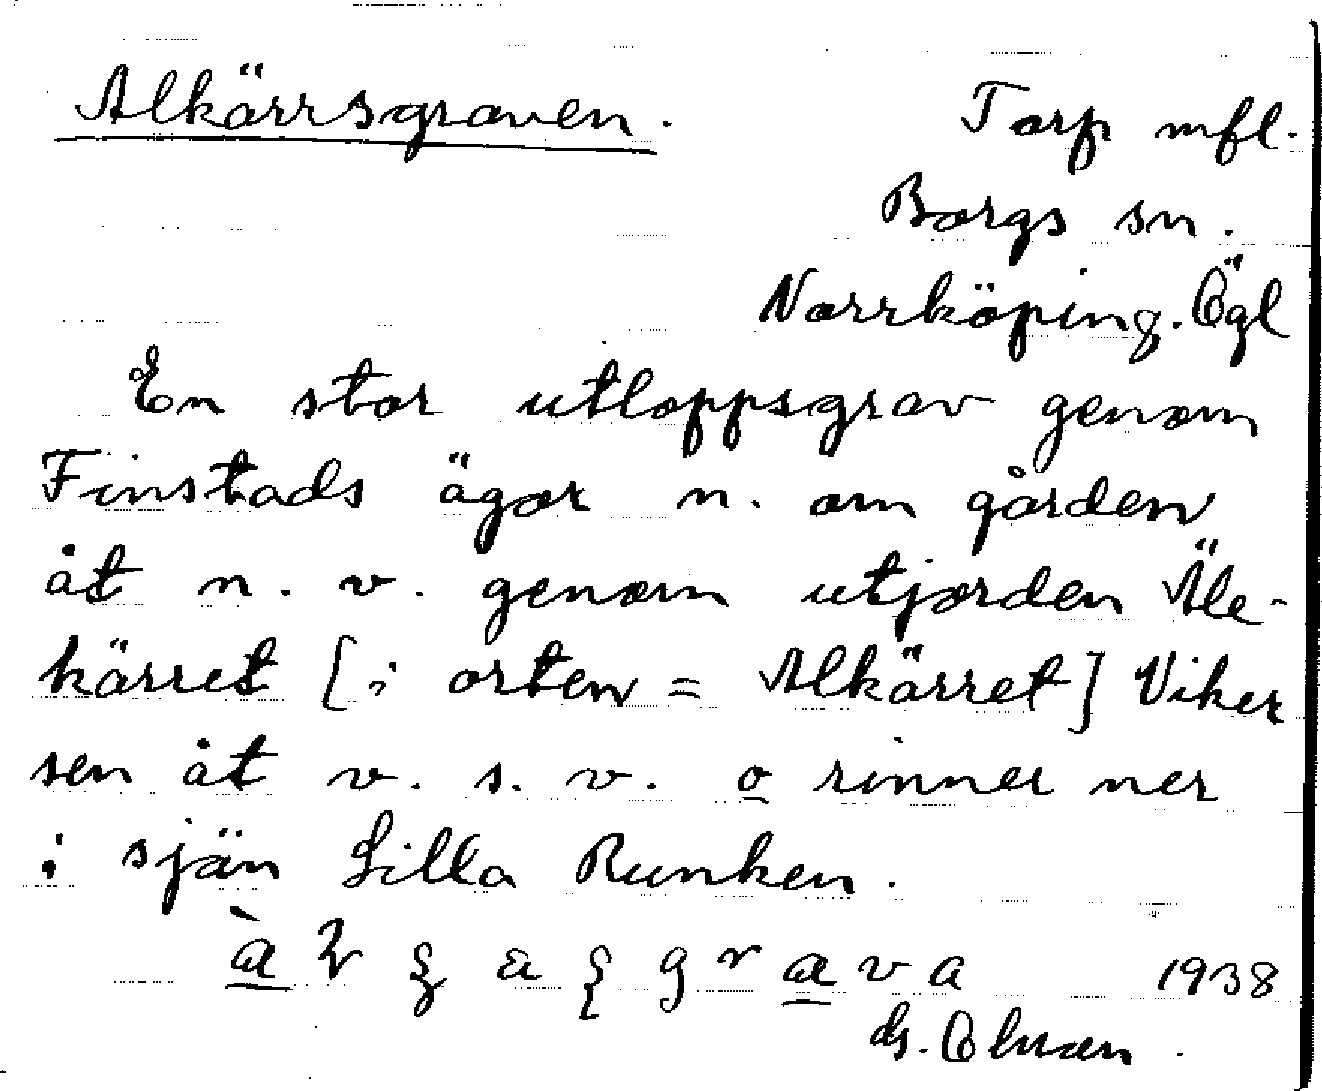 Alkärrsgraven.
Torp mfl.
Borgs sn.
Norrköping. Ögl
En stor utloppsgrav genom
Finstads ägor n. om gården
åt n. v. genom utjorden Äle-
kärret [i orten = Alkärret] Viker
sen åt v. s. v. o rinner ner
i sjön Lilla Runken.
1938